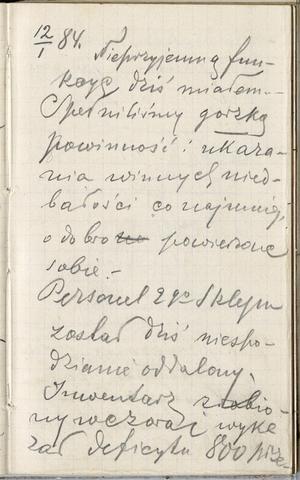 12/1 84. Nieprzyjemną fun-
kcyę dziś miałam.-
Spełniliśmy gorzką
powinność: ukara-
nia winnych nied-
bałości co najmniej,
o dobro powierzone
sobie.-
Personel 2go Sklepu
został dziś niespo-
dzianie oddalony.
Inwentarz zrobio-
ny wczoraj wyka-
zał deficytu 800 prze-